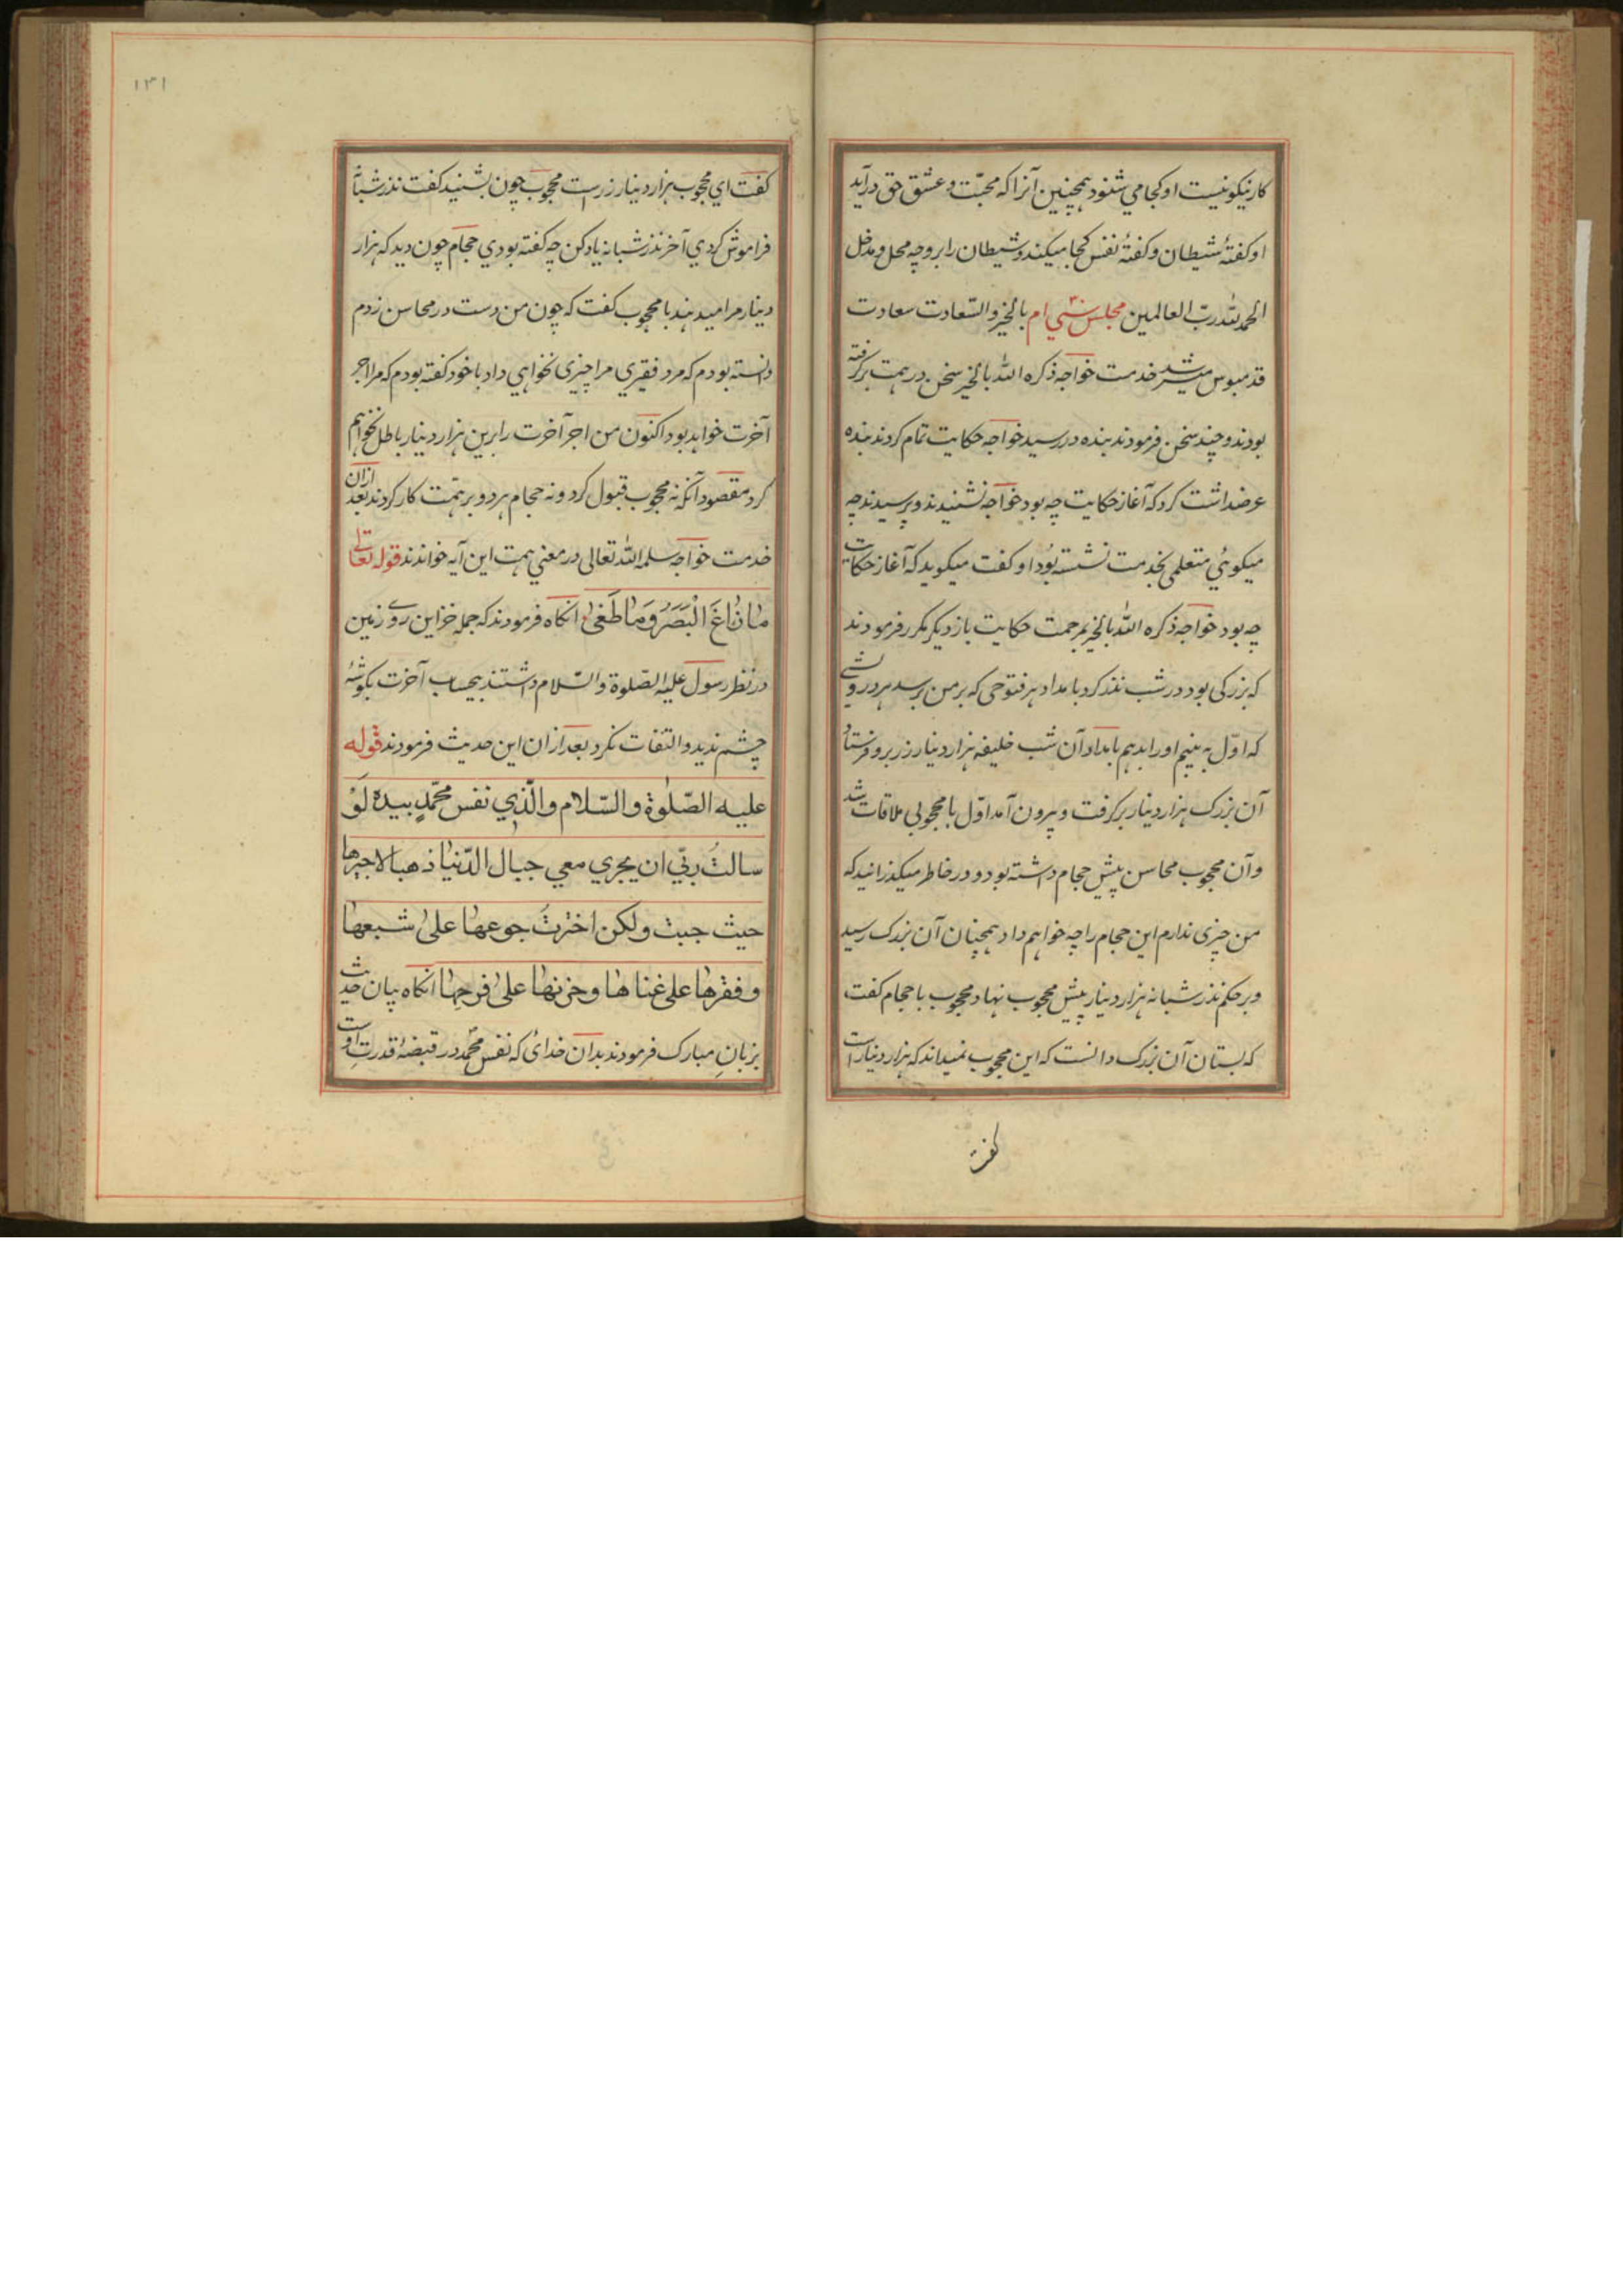 کار نیکو نیست او کجا می شنود همچنین آنرا که محبّت و عشق حق درآید
او کفتهٔ شیطان و کفتهٔ نفس کجا میکند و شیطان را برو چه محل و مدخل
الحمد لله ربّ العالمین مجلس سي ام ۳۰ بالخیر والسّعادت سعادت
قدمبوس میسر شد خدمت خواجه ذکره الله بالخیر سخن در همت برکرفته
بودند و چند سخن فرمودند بنده در رسید خواجه حکایت تمام کردند بنده
عرضداشت کرد که آغاز حکایت چه بود خواجه نشنیدند و پرسیدند چه
میکوئي متعلمی بخدمت نشسته بُود او کفت میکوید که آغاز حکایت
چه بود خواجه ذکره الله بالخیر بمرحمت حکایت باز دیکر مکرر فرمودند
که بزرکی بود در شب نذر کرد بامداد هر فتوحی که بر من برسد هر درویشے
که اوّل به بینم او را بدهم بامداد آن شب خلیفه هزار دینار زر برو فرستاد
آن بزرک هزار دینار برکرفت و بیرون آمد اوّل با محجوبی ملاقات شد
و آن محجوب محاسن پیش حجام داشته بود و در خاطر میکذرانید که
من چیزی ندارم این حجام را چه خواهم داد همچنان آن بزرک رسید
و بر حکم نذر شبانه هزار دینار پیش محجوب نهاد محجوب با حجام کفت
که بستان آن بزرک دانست که این محجوب نمیداند که هزار دینار است
کفت
۱۳۱
کفت اي محجوب هزار دینار زرست محجوب چون بشنید کفت نذر شبانه
فراموش کردي آخر نذر شبانه یاد کن چه کفته بودي حجام چون دید که هزار
دینار مرا میدهند با محجوب کفت که چون من دست در محاسن زدم
دانسته بودم که مرد فقیري مرا چیزی نخواهي داد با خود کفته بودم که مرا اجر
آخرت خواهد بود اکنون من اجر آخرت را برین هزار دینار باطل نخواهم
کرد مقصود آنکه نه محجوب قبول کرد و نه حجام هر دو بر همّت کار کردند بعد ازان
خدمت خواجه سلمه الله تعالی در معني همت این آیه خواندند قوله تعالی
مَا زَاغَ الْبَصَرُ وَمَا طَغٰی انکاه فرمودند که جمله خزاین روے زمین
در نظر رسول علیه الصّلوة والسّلام داشتند بحساب آخرت بکوشهٔ
چشم ندید و التفات نکرد بعد ازان این حدیث فرمودند قوله
علیه الصّلوة والسّلام والّذي نفس محمّدٍ بیده لَوْ
سالتُ ربّي ان یجري معي جبال الدّنیا ذهبا لاجراها
حیث جبت ولکن اخترتُ جوعها علیٰ شبعها
وفقرها علی غناها وحزنها علیٰ فرحها انکاه بیان حدیث
بزبانِ مبارک فرمودند بدان خدای که نفس محمّد در قبضهٔ قدرتِ اوست